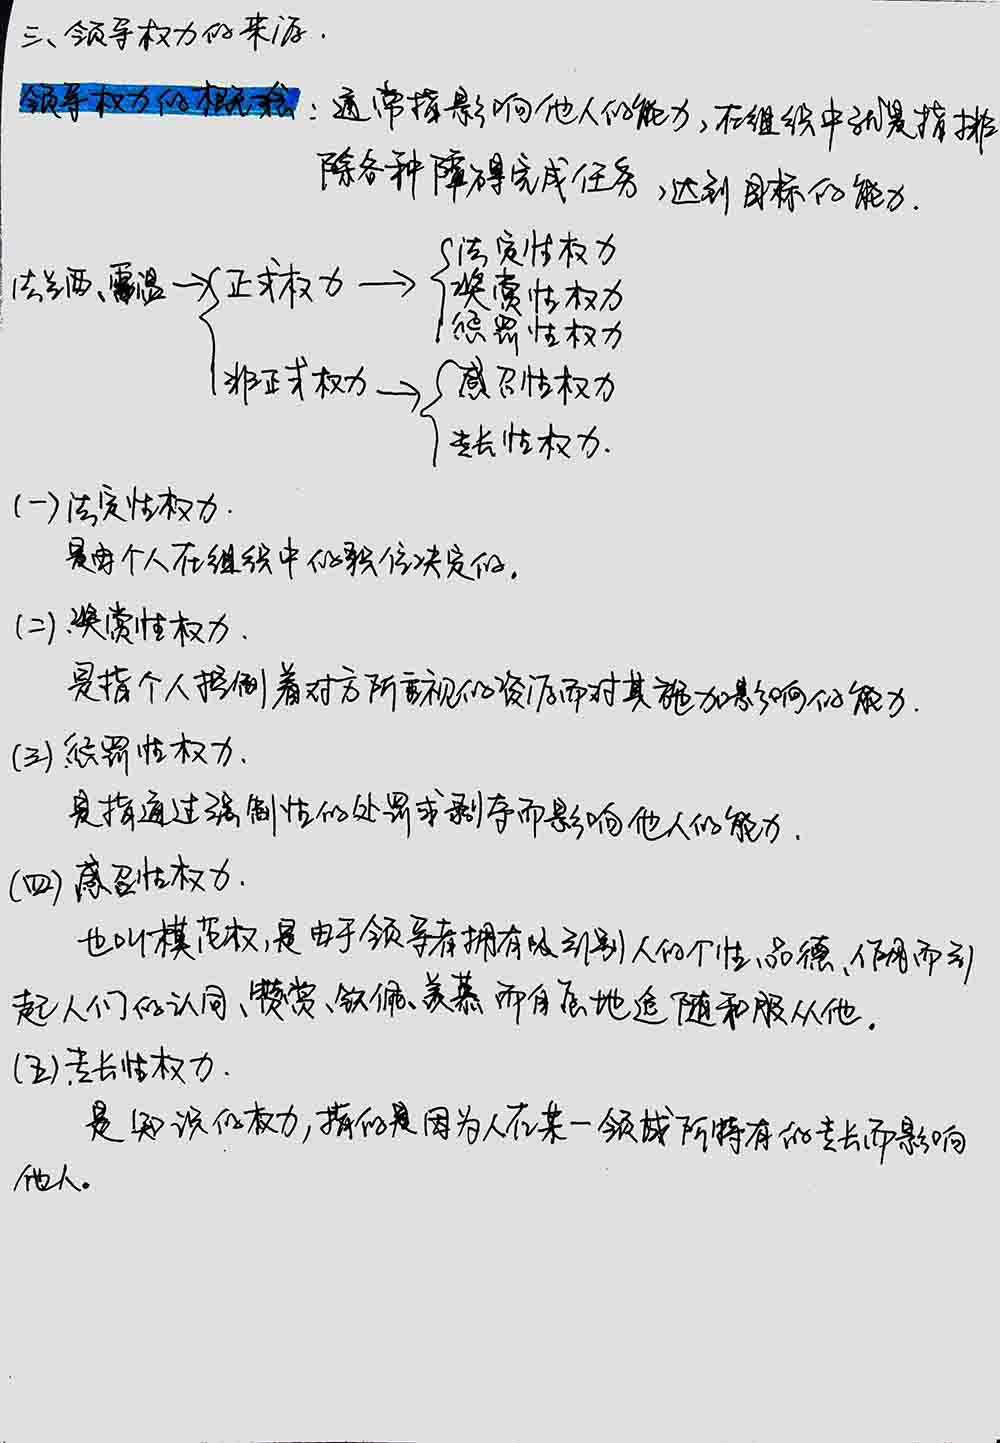 三、领导权力的来源.
领导权力的概念：通常指影响他人的能力,在组织中就是指排
除各种障碍完成任务,达到目标的能力.
法兰西、雷温→{正式权力→{法定性权力
奖赏性权力
惩罚性权力
非正式权力→{感召性权力
专长性权力.
(一)法定性权力.
是由个人在组织中的职位决定的。
(二).奖赏性权力.
是指个人控制着对方所重视的资源而对其施加影响的能力.
(三)惩罚性权力.
是指通过强制性的处罚或剥夺而影响他人的能力.
(四)感召性权力.
也叫模范权,是由于领导者拥有吸引别人的个性、品德、作风而引
起人们的认同、赞赏、钦佩、羡慕而自愿地追随和服从他。
(五)专长性权力.
是知识的权力,指的是因为人在某一领域所特有的专长而影响
他人。